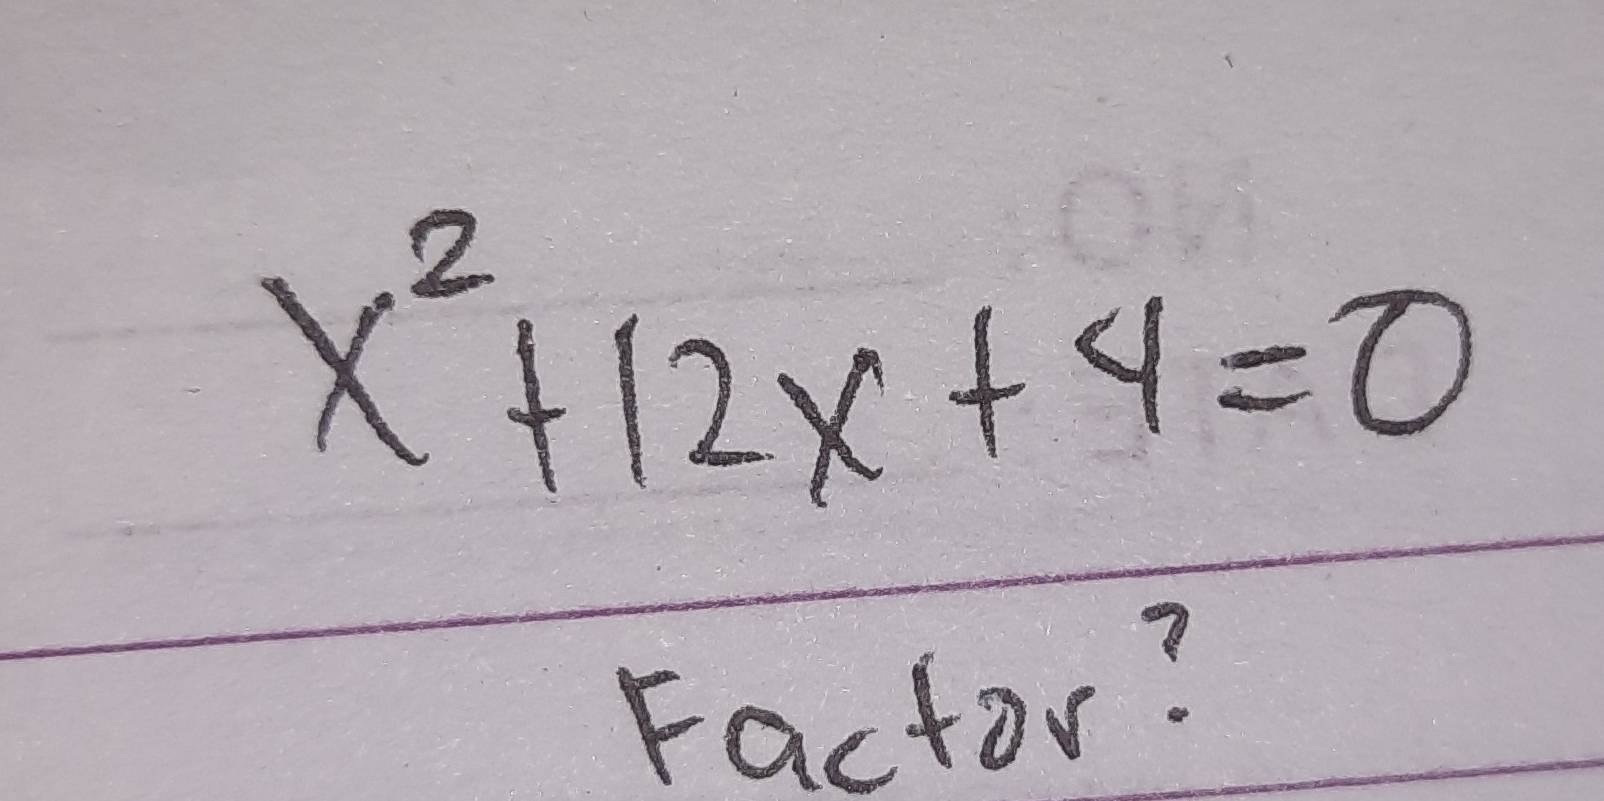 x²+12x+4=0
Factor?